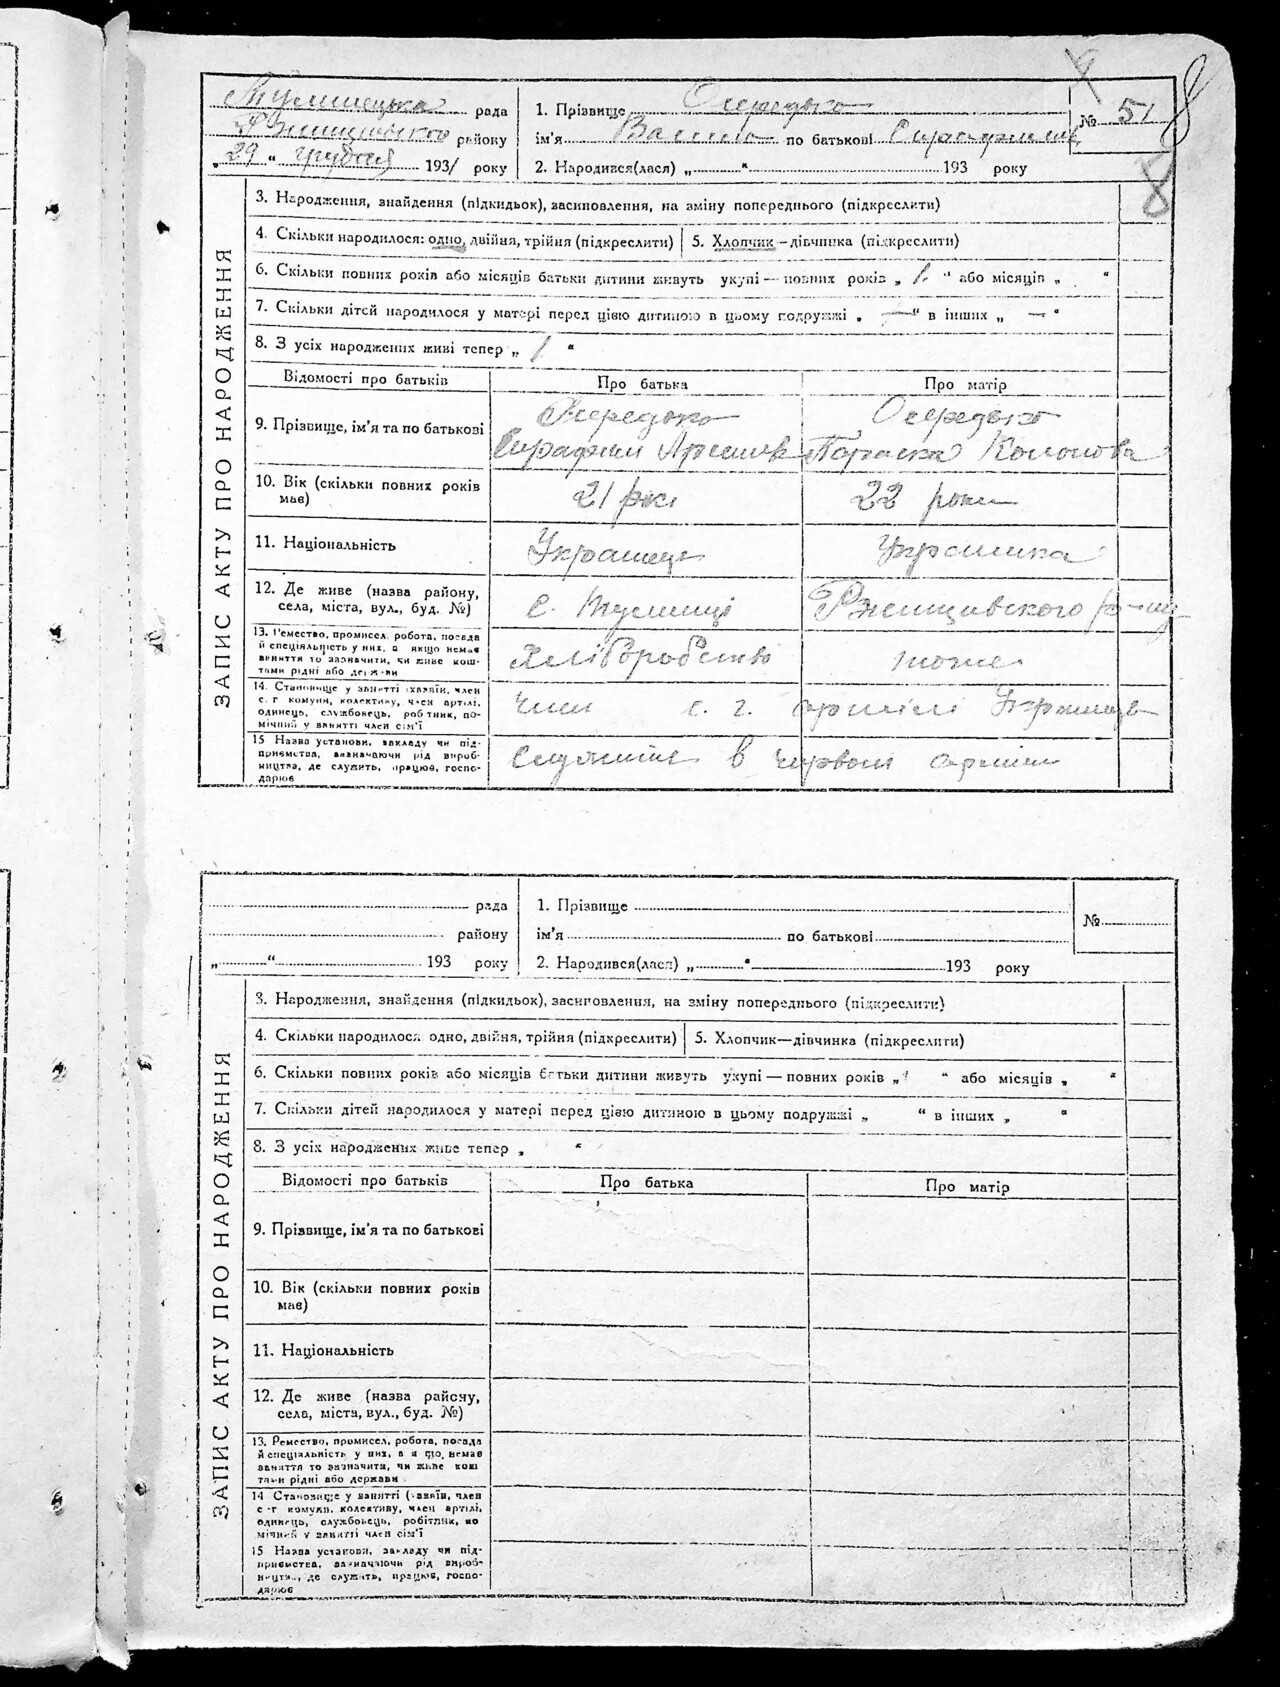 Тулинецька рада
Ржищівського району
„ 29 “ грудня 1931 року
1. Прізвище Осередько
ім'я Василь по батькові Серафимів
№ 51
8
8
2. Народився(лася) „ “ 193 року
ЗАПИС АКТУ ПРО НАРОДЖЕННЯ
3. Народження, знайдення (підкидьок), засиновлення, на зміну попереднього (підкреслити)
4. Скільки народилося: одно, двійня, трійня (підкреслити) 5. Хлопчик—дівчинка (підкреслити)
6. Скільки повних років або місяців батьки дитини живуть укупі — повних років „ 1 “ або місяців „ “
7. Скільки дітей народилося у матері перед цією дитиною в цьому подружжі „ — “ в інших „ — “
8. З усіх народжених живі тепер „ 1 “
Відомості про батьків Про батька Про матір
9. Прізвище, ім'я та по батькові Осередько Осередько
Серафим Арсенів Параска Кононова
10. Вік (скільки повних років має) 21 рік 22 роки
11. Національність Українець Українка
12. Де живе (назва району, села, міста, вул., буд. №) С. Тулинці Ржищівського р-ну
13. Ремество, промисел, робота, посада
й спеціяльність у них, а якщо немає
заняття то зазначити, чи живе кош-
тами рідні або держави
Хліборобство тоже
14. Становище у занятті (хазяїн, член
с.-г. комуни, колективу, член артілі,
одинець, службовець, робітник, по-
мічний у занятті член сім'ї
член с. г. артілі
15 Назва установи, закладу чи під-
приємства, зазначаючи рід вироб-
ництва, де служить, працює, госпо-
дарює
в червоні армии
рада
району
„ “ 193 року
1. Прізвище
ім'я по батькові
№
2. Народився(лася) „ “ 193 року
ЗАПИС АКТУ ПРО НАРОДЖЕННЯ
3. Народження, знайдення (підкидьок), засиновлення, на зміну попереднього (підкреслити)
4. Скільки народилося: одно, двійня, трійня (підкреслити) 5. Хлопчик—дівчинка (підкреслити)
6. Скільки повних років або місяців батьки дитини живуть укупі — повних років „ “ або місяців „ “
7. Скільки дітей народилося у матері перед цією дитиною в цьому подружжі „ “ в інших „ “
8. З усіх народжених живе тепер „ “
Відомості про батьків Про батька Про матір
9. Прізвище, ім'я та по батькові
10. Вік (скільки повних років
має)
11. Національність
12. Де живе (назва району,
села, міста, вул., буд. №)
13. Ремество, промисел, робота, посада
й спеціяльність у них, а якщо немає
заняття то зазначити, чи живе кош
тами рідні або держави
14 Становище у занятті (хазяїн, член
с.-г комуни, колективу, член артілі,
одинець, службовець, робітник, по
мічний у занятті член сім'ї
15 Назва установи, закладу чи під-
приємства, зазначаючи рід вироб-
ництва, де служить, працює, госпо-
дарює